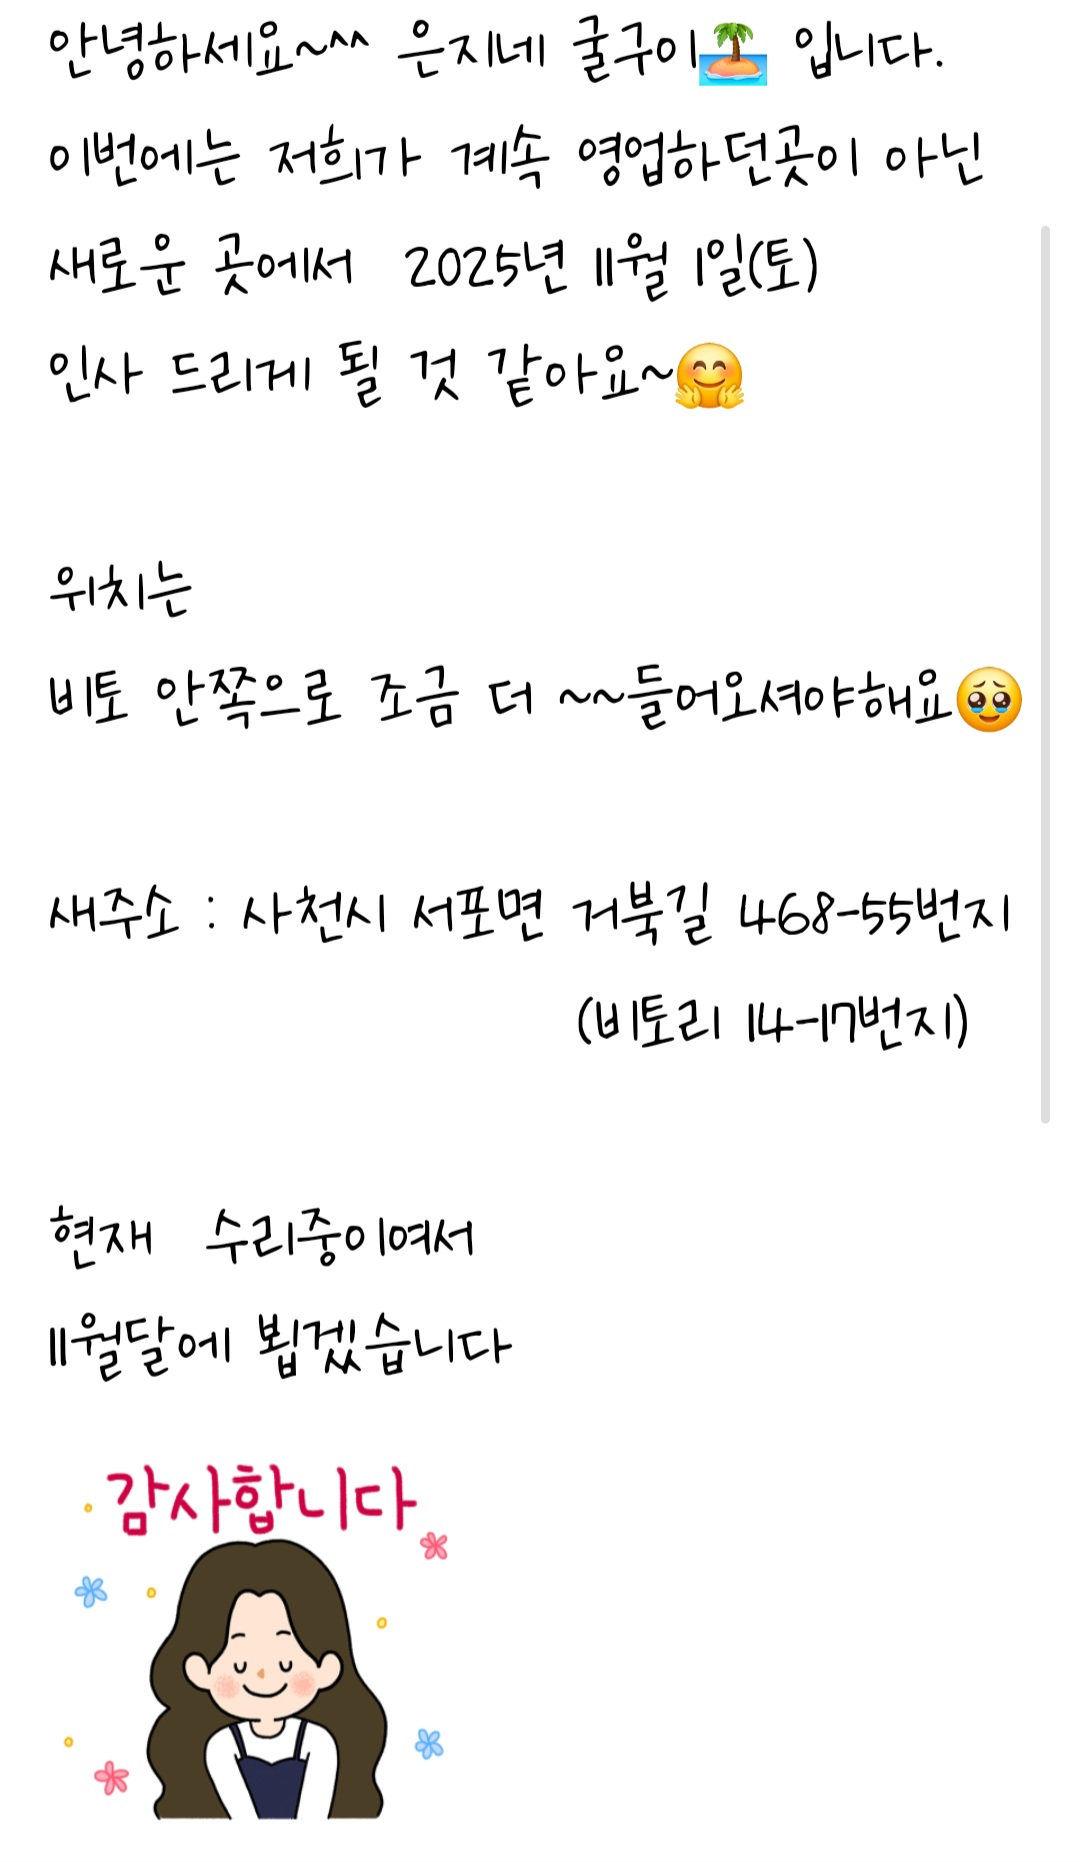 안녕하세요~^^ 은지네 굴구이🏝 입니다.
이번에는 저희가 계속 영업하던곳이 아닌
새로운 곳에서 2025년 11월 1일(토)
인사 드리게 될 것 같아요~🤗
위치는
비토 안쪽으로 조금 더 ~~들어오셔야해요🥹
새주소 : 사천시 서포면 거북길 468-55번지
(비토리 14-17번지)
현재 수리중이여서
11월달에 뵙겠습니다
감사합니다